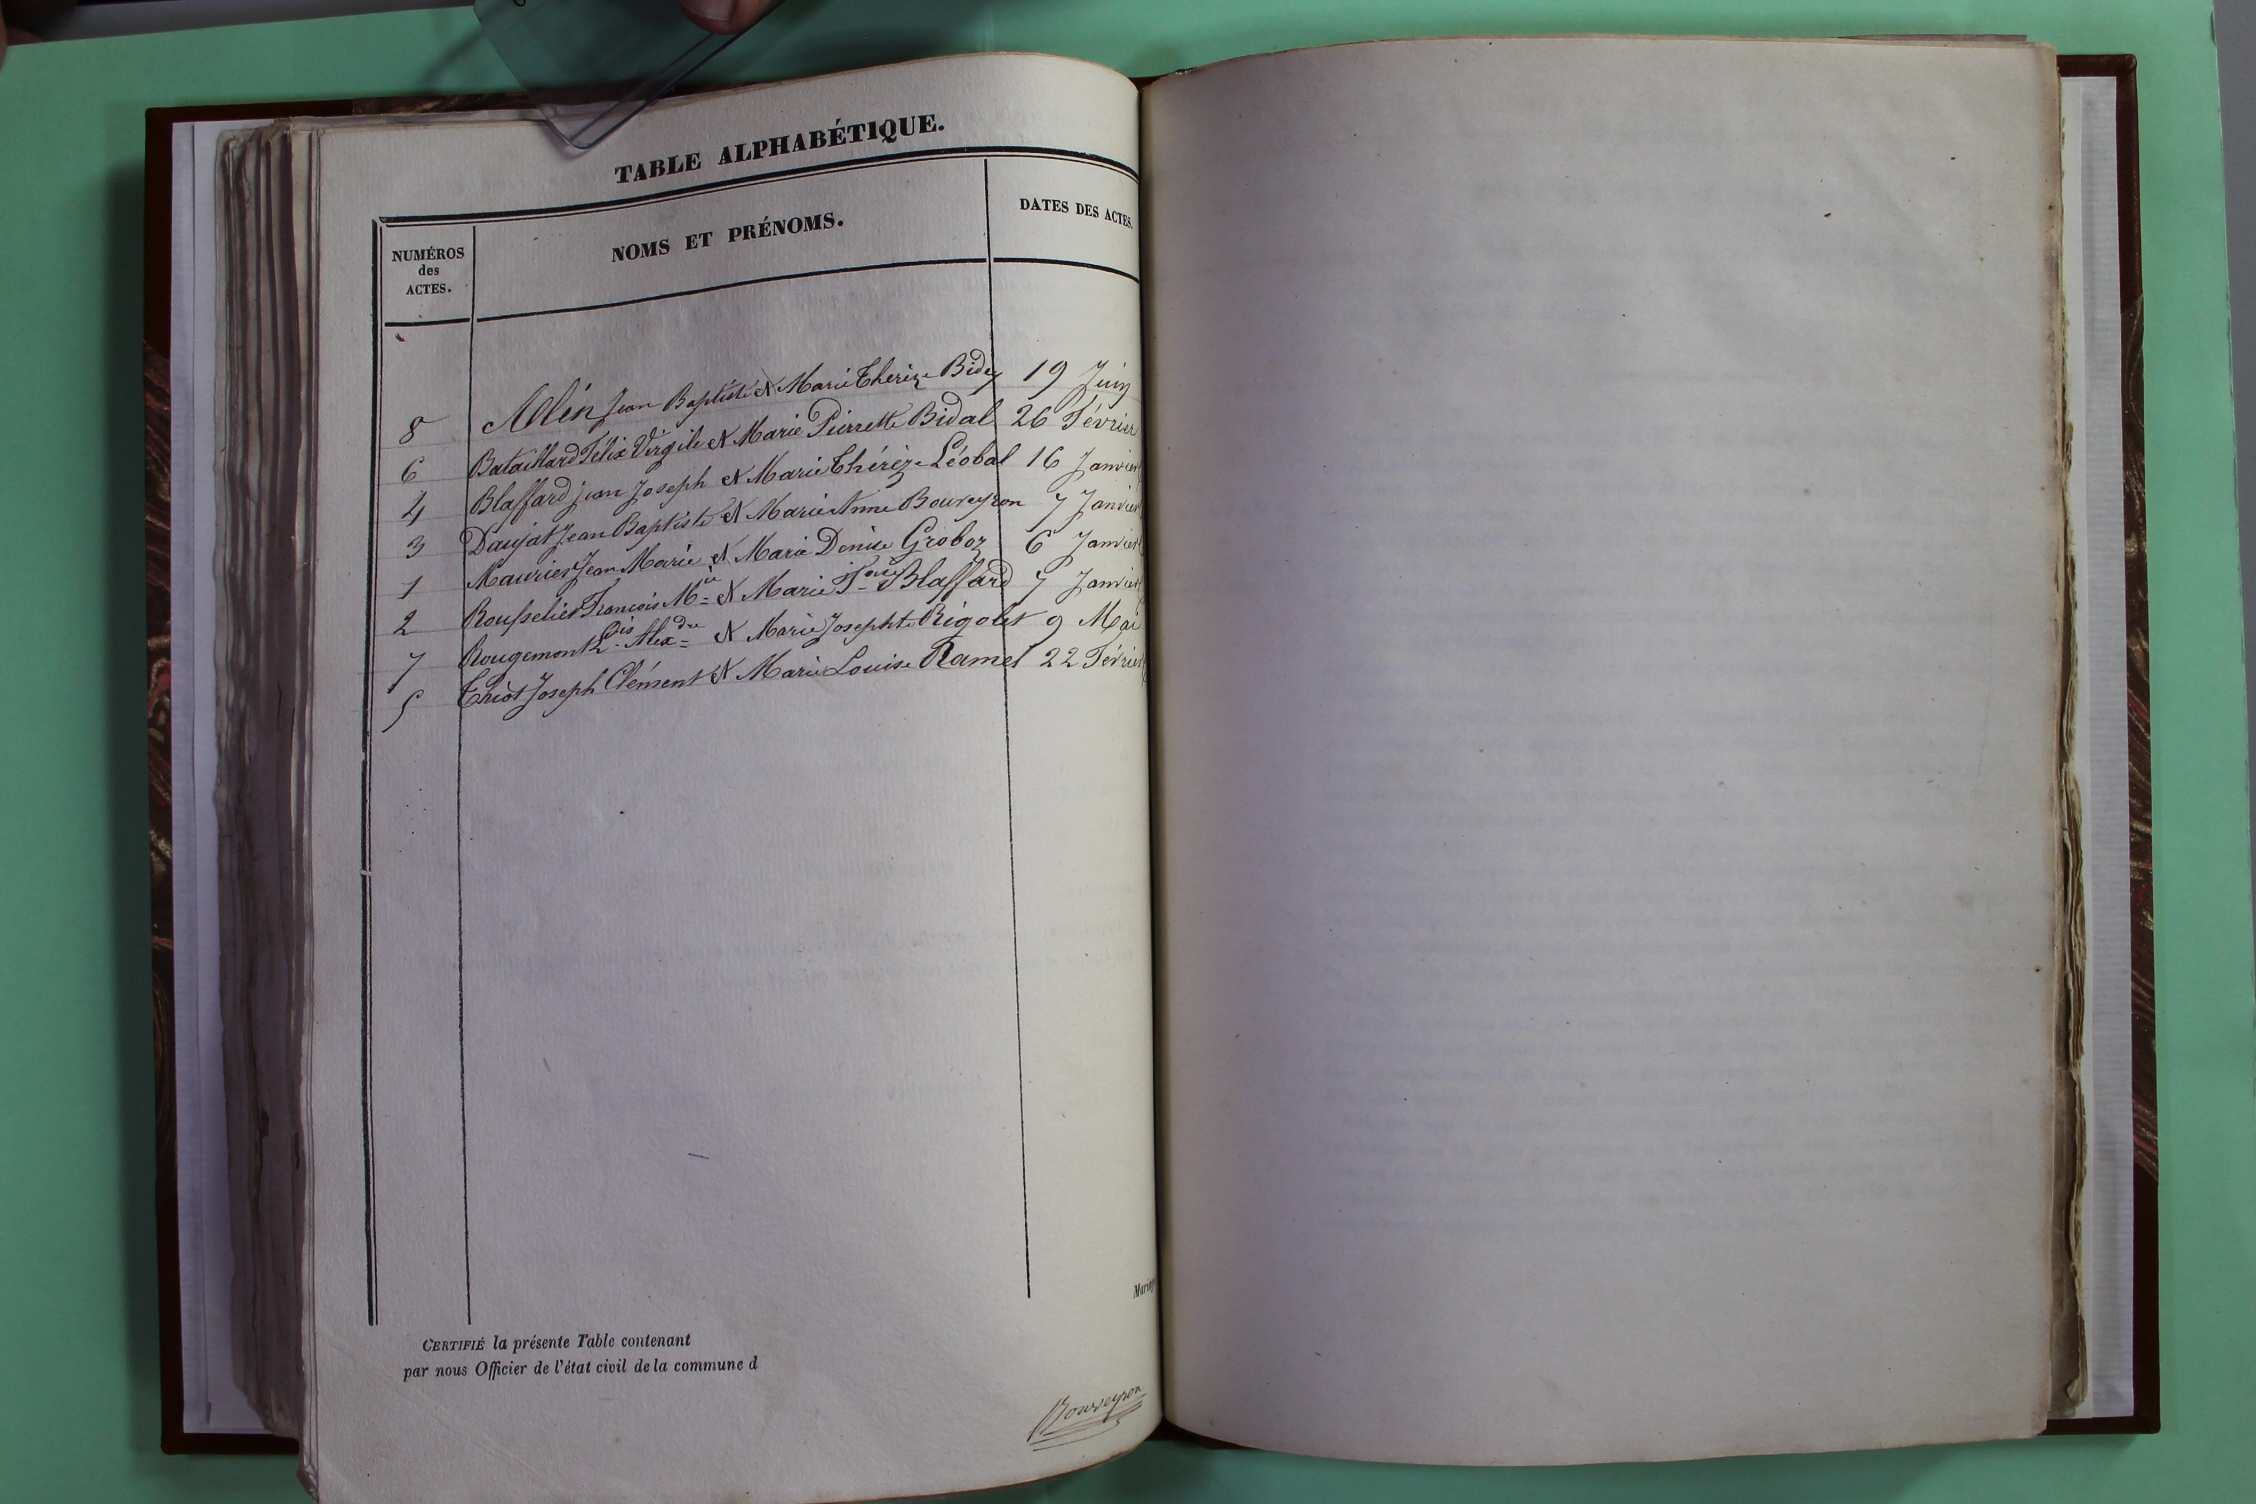 TABLE ALPHABÉTIQUE.
NUMÉROS des ACTES.
NOMS ET PRÉNOMS.
DATES DES ACTES.
8 Jean Baptiste et Marie Thérèze Bidey 19 Juin
6 Bataillard Félix Virgile et Marie Pierrette Bidal 26 Février
4 Blaffard jean Joseph et Marie Thérèze Léobal 16 Janvier
3 Daujat Jean Baptiste et Marie Anne Bouveyron 7 Janvier
1 Maurier Jean Marie et Marie Denise Groboz 6 Janvier
2 Rousselier François Mie et Marie Blaffard 7 Janvier
7 Rougemont Lis Alexdre et Marie Josephte Rigolet 9 Mai
5 Thiot Joseph Clément et Marie Louise Ramel 22 Février
CERTIFIÉ la présente Table contenant
par nous Officier de l'état civil de la commune d
Bouveyron